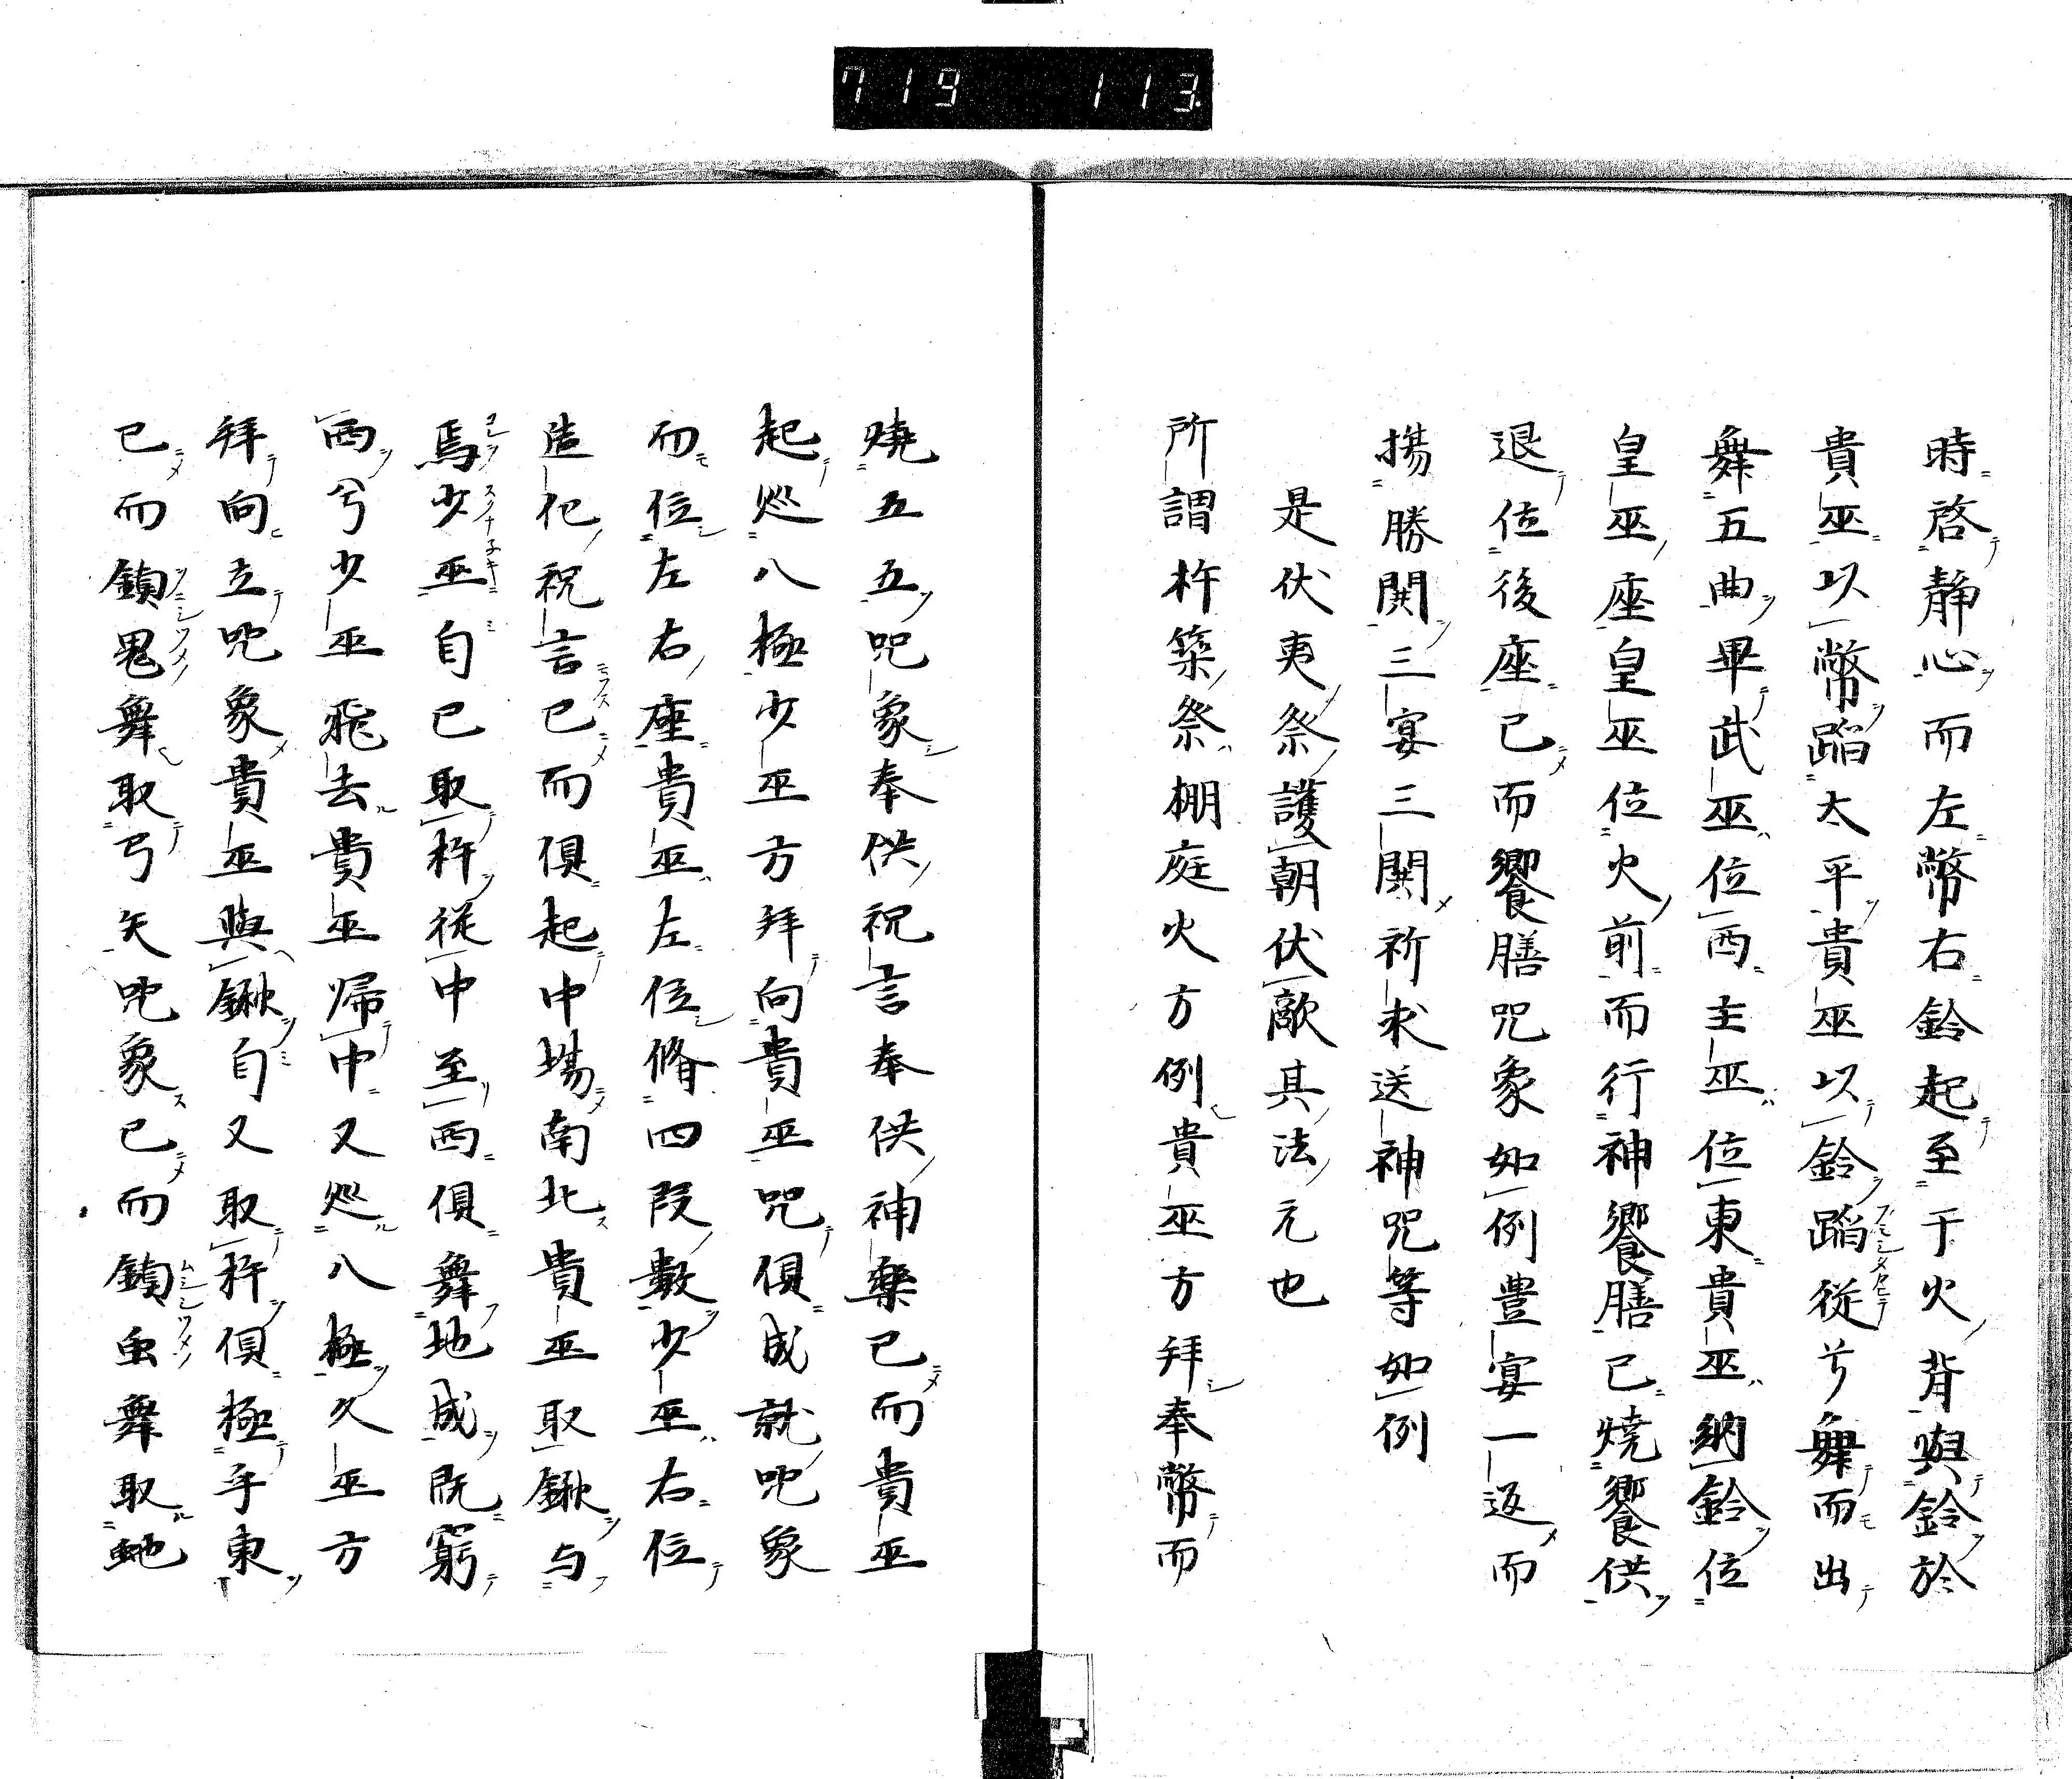 719 113
時啓静心而左幣右鈴起至于火背與鈴於
貴巫以幣蹈太平貴巫以鈴蹈従兮舞而出
舞五曲畢武巫位西主巫位東貴巫納鈴位
皇巫座皇巫位火前而行神饗膳已焼饗供
退位後座已而饗膳咒象如例豊宴一返而
揚勝閧三宴三閧祈求送神咒等如例
是伏夷祭護朝伏敵其法元也
所謂杵築祭棚庭火方例貴巫方拜奉幣而
焼五五咒象奉供祝言奉供神樂已而貴巫
起巡八極少巫方拜向貴巫咒俱成就咒象
而位左右座貴巫左位脩四段數少巫右位
造化祝言已而俱起中場南北貴巫取鍬与
焉少巫自已取杵従中至西俱舞地成既窮
西兮少巫飛去貴巫帰中又巡八極久巫方
拜向立咒象貴巫與鍬自又取杵俱極手東
已而鎮鬼舞取弓矢咒象已而鎮虫舞取虵